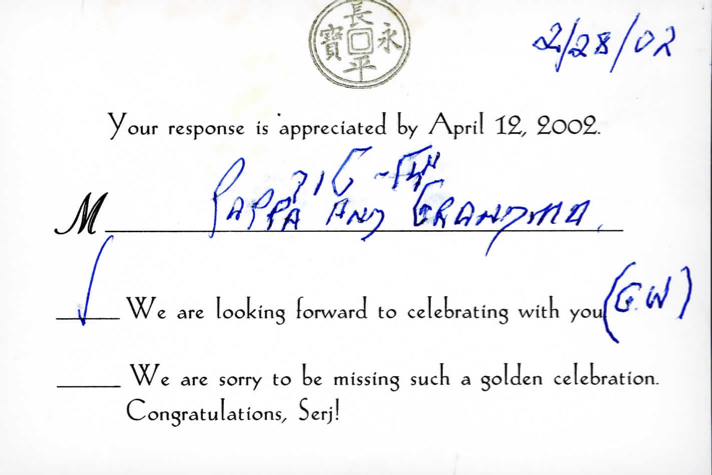 長永平寶
2/28/02
Your response is appreciated by April 12, 2002.
M PAPPA AND GRANDMA.
We are looking forward to celebrating with you (G.W)
We are sorry to be missing such a golden celebration.
Congratulations, Serj!